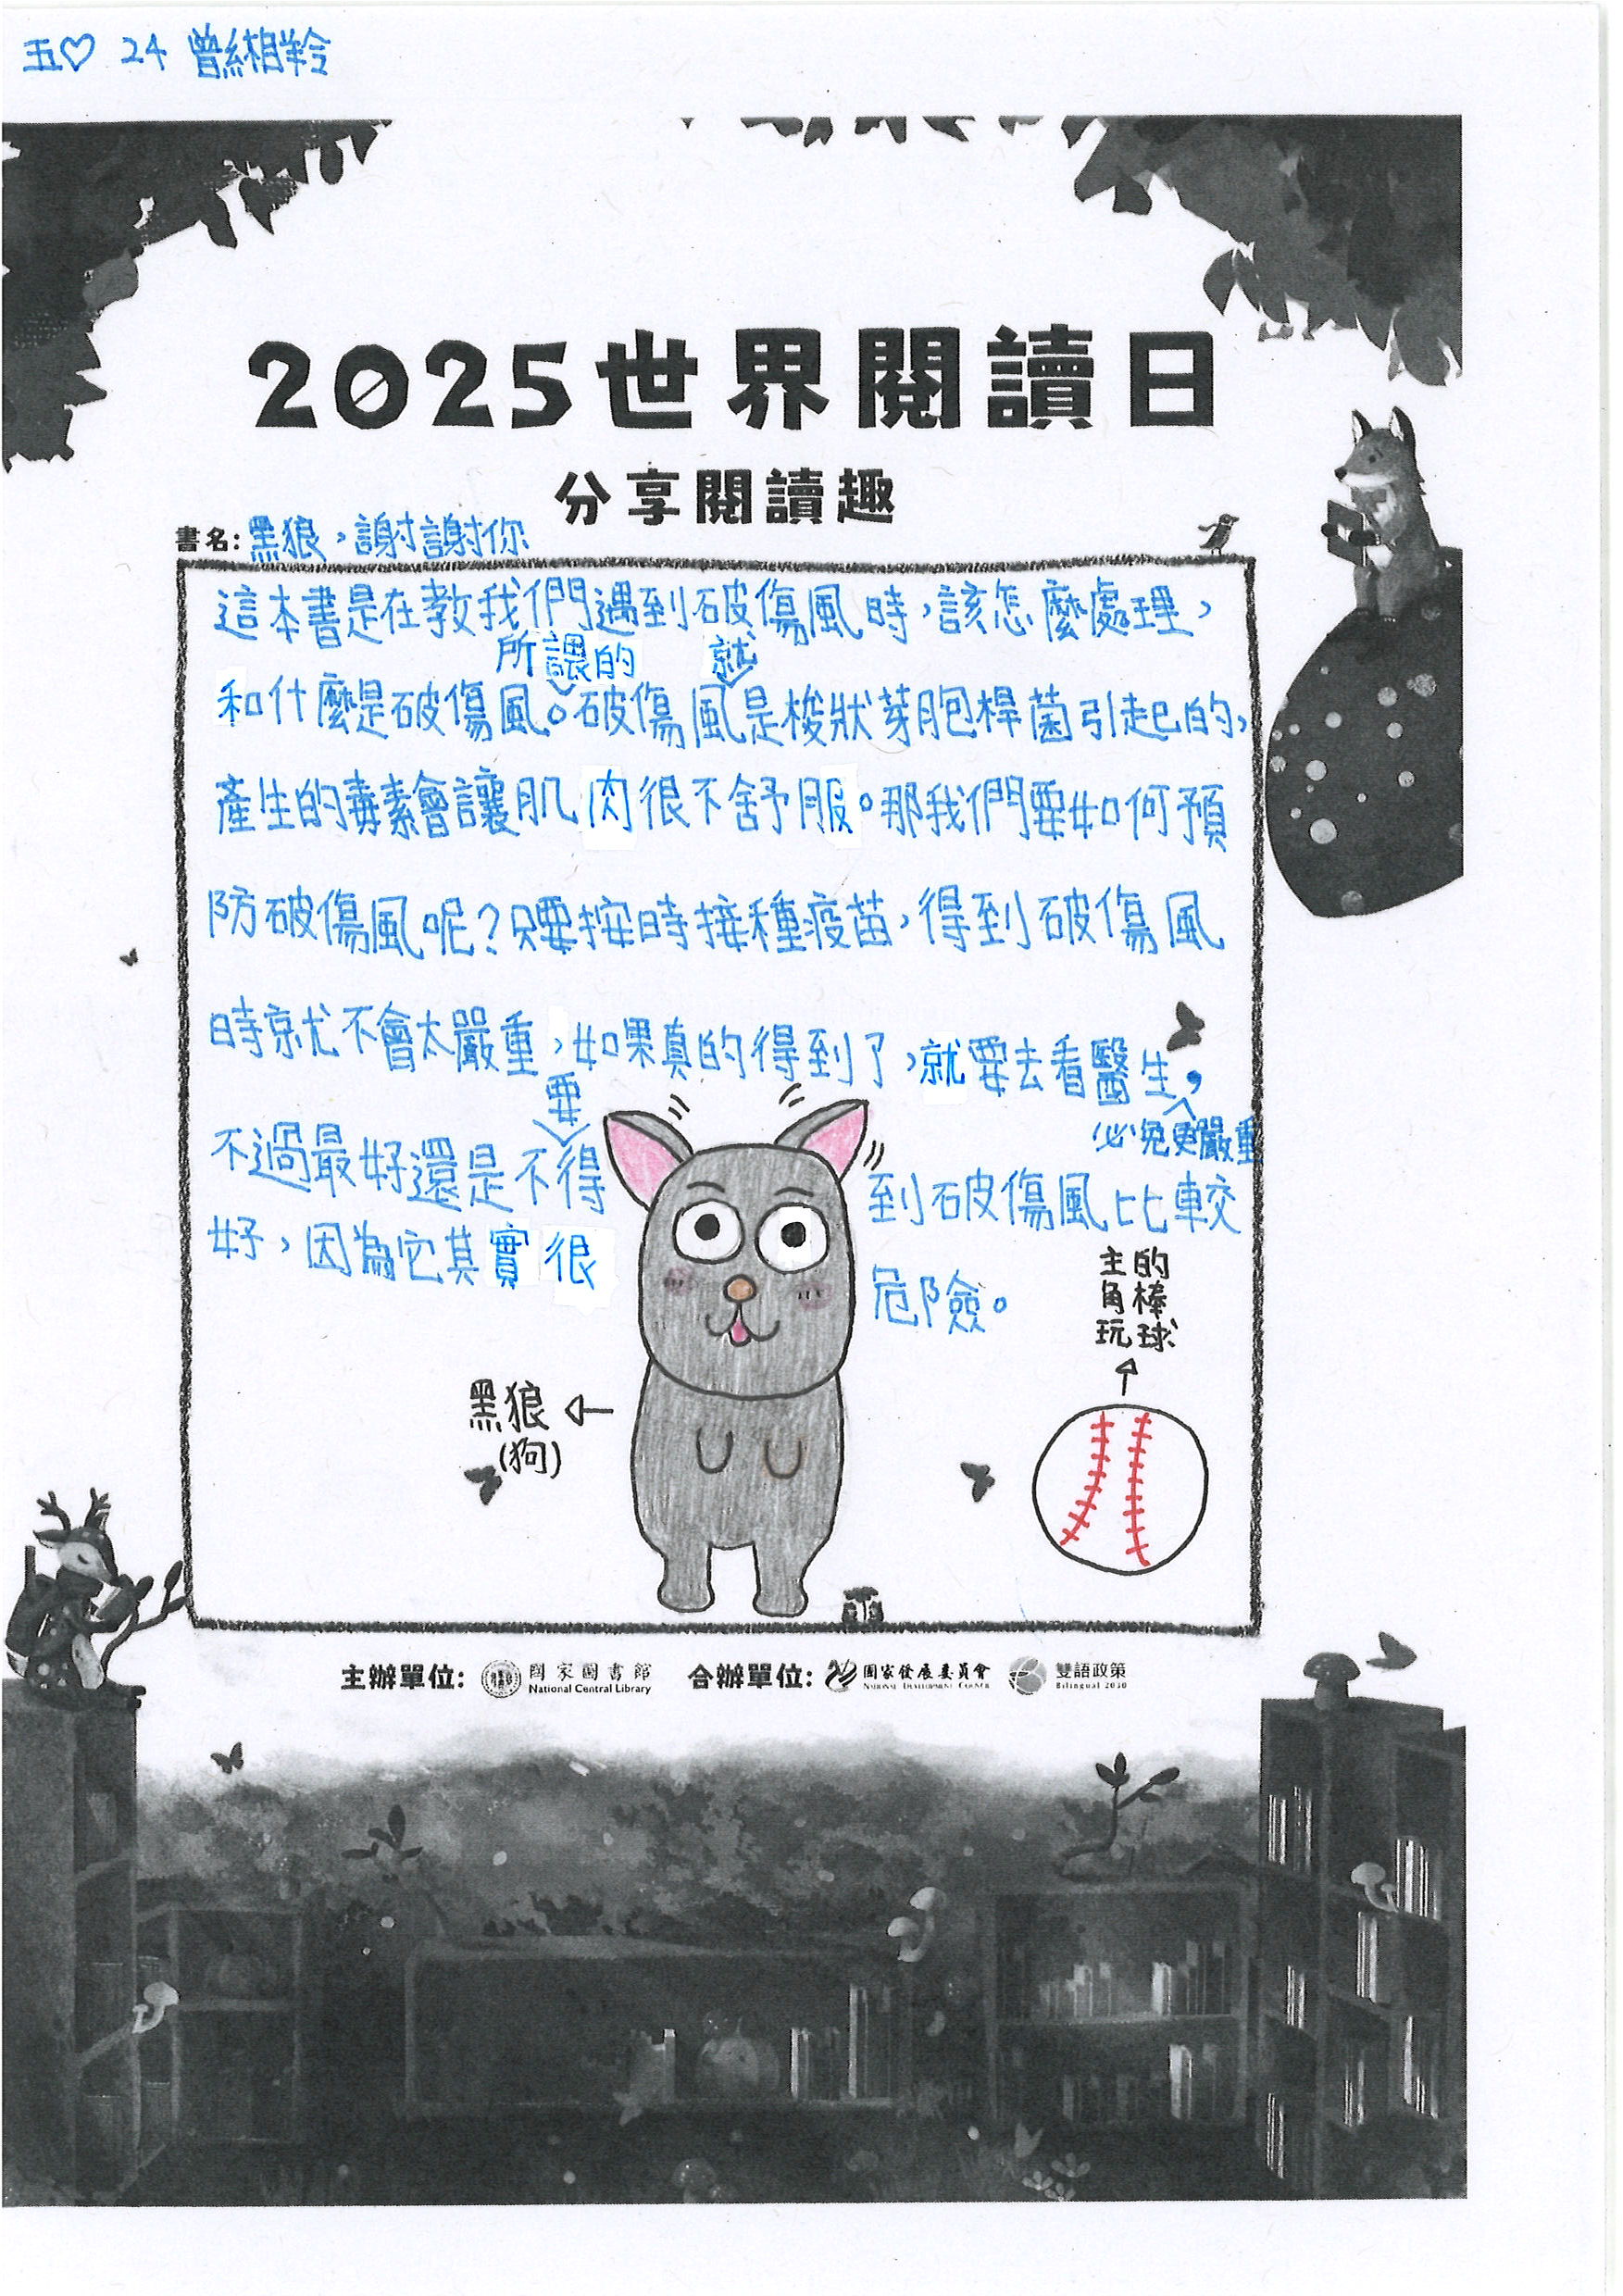 五♡ 24 曾緗羚
2025世界閱讀日
分享閱讀趣
書名:黑狼，謝謝你
這本書是在教我們遇到破傷風時，該怎麼處理，
所謂的 就
和什麼是破傷風。破傷風是梭狀芽胞桿菌引起的，
產生的毒素會讓肌肉很不舒服。那我們要如何預
防破傷風呢?只要按時接種疫苗，得到破傷風
時就不會太嚴重，如果真的得到了，就要去看醫生，
要
必免更嚴重
不過最好還是不得到破傷風比較
好，因為它其實很危險。
主角玩的棒球
黑狼
(狗)
主辦單位: 國家圖書館 National Central Library 合辦單位: 國家發展委員會 NATIONAL DEVELOPMENT COUNCIL 雙語政策 Bilingual 2030